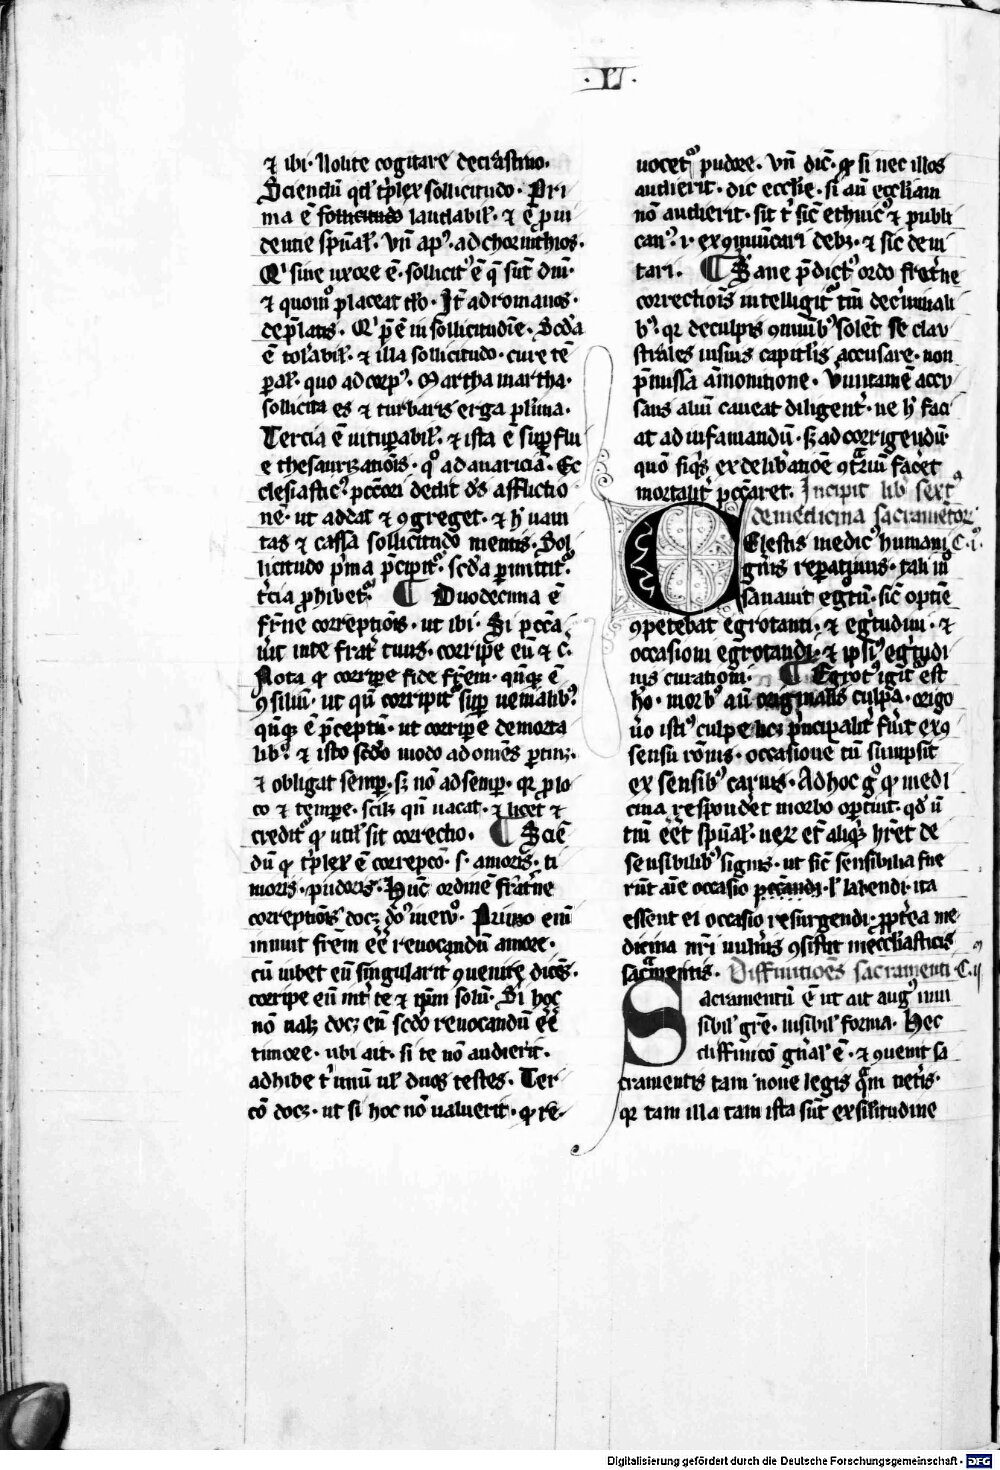 .L͞I.
⁊ ibi · Nolite cogitare de crastino ·
Sciendū qd' t͛plex sollicitudo · Pri
ma ē sollicitudo laudabil' · ⁊ ē ꝓui
dentie sp̄ual' · Vn̄ apꝰ · ad chorinthios ·
Qⁱ sine uxore ē · sollicitꝰ ē q̄ sūt dn̄i ·
⁊ quomͦ placeat deo · It̄ ad romanos ·
de p̄latis · Qⁱ p̄ ē in sollicitudīe · Scd'a
ē tol'abil' · ⁊ illa sollicitudo · cure tē
ꝑal' · quo ad corpꝰ · Martha martha ·
sollicita es ⁊ turbaris erga plīma ·
Tercia ē uituꝑabil' · ⁊ ista ē suꝑflu
e thesaurizatiōis · qͦ ad auariciā · Ec
clesiasticꝰ pcc̄ori dedit d's afflictio
nē · ut addat ⁊ ꝯgreget · ⁊ h̄ uani
tas ⁊ cassa sollicitudo mentis · Sol
licitudo p͛ma p̄cipitͬ · scd'a ꝑmittitͬ
t͛cia ꝓhibetͬ · ¶ Duodecima ē
fr̄ne correptiōis · ut ibi · Si pcc̄a
u͛it in te frat͛ tuus · corripe eū ⁊ c̄ ·
Nota ꝙ corripe fide fr̄em · qn̄qꝫ ē
ꝯsiliū · ut qn̄ corripitͬ suꝑ uenialibꝰ
qn̄qꝫ ē p̄ceptū · ut corripe de morta
libꝰ · ⁊ isto scd'o modo ad om̄es ꝑtinꝫ ·
⁊ obligat semꝑ · sꝫ nō ad semꝑ · qꝛ ꝓ lo
co ⁊ tempe · scilꝫ qn̄ uacat · ⁊ licet ⁊
creditͬ ꝙ util' sit correctio · ¶ Sciē
dū ꝙ t͛plex ē correpcͦ · s · amoris · ti
moris · pudoris · Hūc ordinē frat͛ne
correptiōis docꝫ dn̄s ī meͦ · Primo enī
innuit fr̄em eē̄ reuocandū amore ·
cū iubet eū singularit͛ ꝯuenire dicēs ·
corripe eū int͛ te ⁊ ip̄m solū · Si hoc
nō ualꝫ docꝫ eū scd'o reuocandū eē̄
timore · ubi ait · si te nō audierit ·
adhibe t͛ unū ul' duos testes · Ter
cō docꝫ · ut si hoc nō ualuerit · ꝙ re
uocetͬ pudore · Vn̄ dic̄ · ꝙ si nec illos
audierit · dic eccl'ie · si aū eccl'iam
nō audierit · sit t͛ sic̄ ethnicꝰ ⁊ publi
canꝰ · i · exꝯmūicari debꝫ · ⁊ sic deui
tari · ¶ Sane p̄dictꝰ ordo frat͛ne
correctiōis intelligitͬ tm̄ de c͛minali
bꝰ · qꝛ de culpis ꝯmūibꝰ solēt se clau
strales in suis capitl'is accusare · non
p̄missa am̄onitione · Verūtamē accu
sans aliū caueat diligent͛ · ne h̄ faci
at ad infamandū · sꝫ ad corrigendū ·
quō siqͥs ex delib͛atiōe ꝯt͛riū fac͛et
mortalit͛ pcc̄aret · Incipit lib͛ sextꝰ
de medicina sacramētoꝝ
Celestis medicꝰ humani C · iͦ ·
gn̄is reꝑatiuus · tali mͦ
sanauit eg͛tū · sic̄ optie
ꝯpetebat egrotanti · ⁊ eg͛tudini · ⁊
occasioni egrotandi · ⁊ ipsiꝰ eg͛tudi
nis curationi · ¶ Egrotꝰ igit͛ est
hō · morbꝰ aū originalis culpa · origo
u͛o istiꝰ culpe licꝫ p͛ncipalit͛ fu͛it ex ꝯ
sensu rōnis · occasione tn̄ sumpsit
ex sensibꝰ carnis · Ad hoc gͦ ꝙ medi
cina respondet morbo oportuit · qd' ū
tm̄ eēt sp̄ual' · uerꝫ et̄ aliqͥs hr̄et de
sensibilibꝰ signis · ut sic̄ sensibilia fue
rūt aīe occasio peccandi · l' labendi · ita
essent ei occasio resurgendi · ꝓpt͛ea me
dicina nr̄i uuln͛is ꝯsistit in eccl'iasticis
sac͛mentis · Diffinitiōes sacramenti · C · ijͦ
Sacramentū ē ut ait augꝰ inui
sibil' gr̄e · uisibil' forma · Hec
diffinicō gn̄al' ē · ⁊ ꝯuenit sa
cramentis tam noue legis qͣm uet͛is ·
qꝛ tam illa tam ista sūt ex silitudine
Digitalisierung gefördert durch die Deutsche Forschungsgemeinschaft - DFG